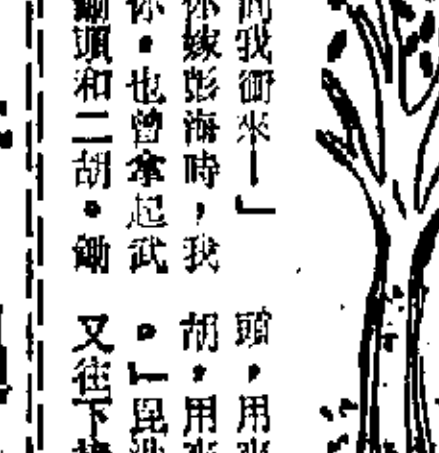 我衝來—」
你嫁彭海時，我
你。也曾拿起武
鋤頭和二胡。鋤
頭，用來
胡，用來
。」昆
又往下